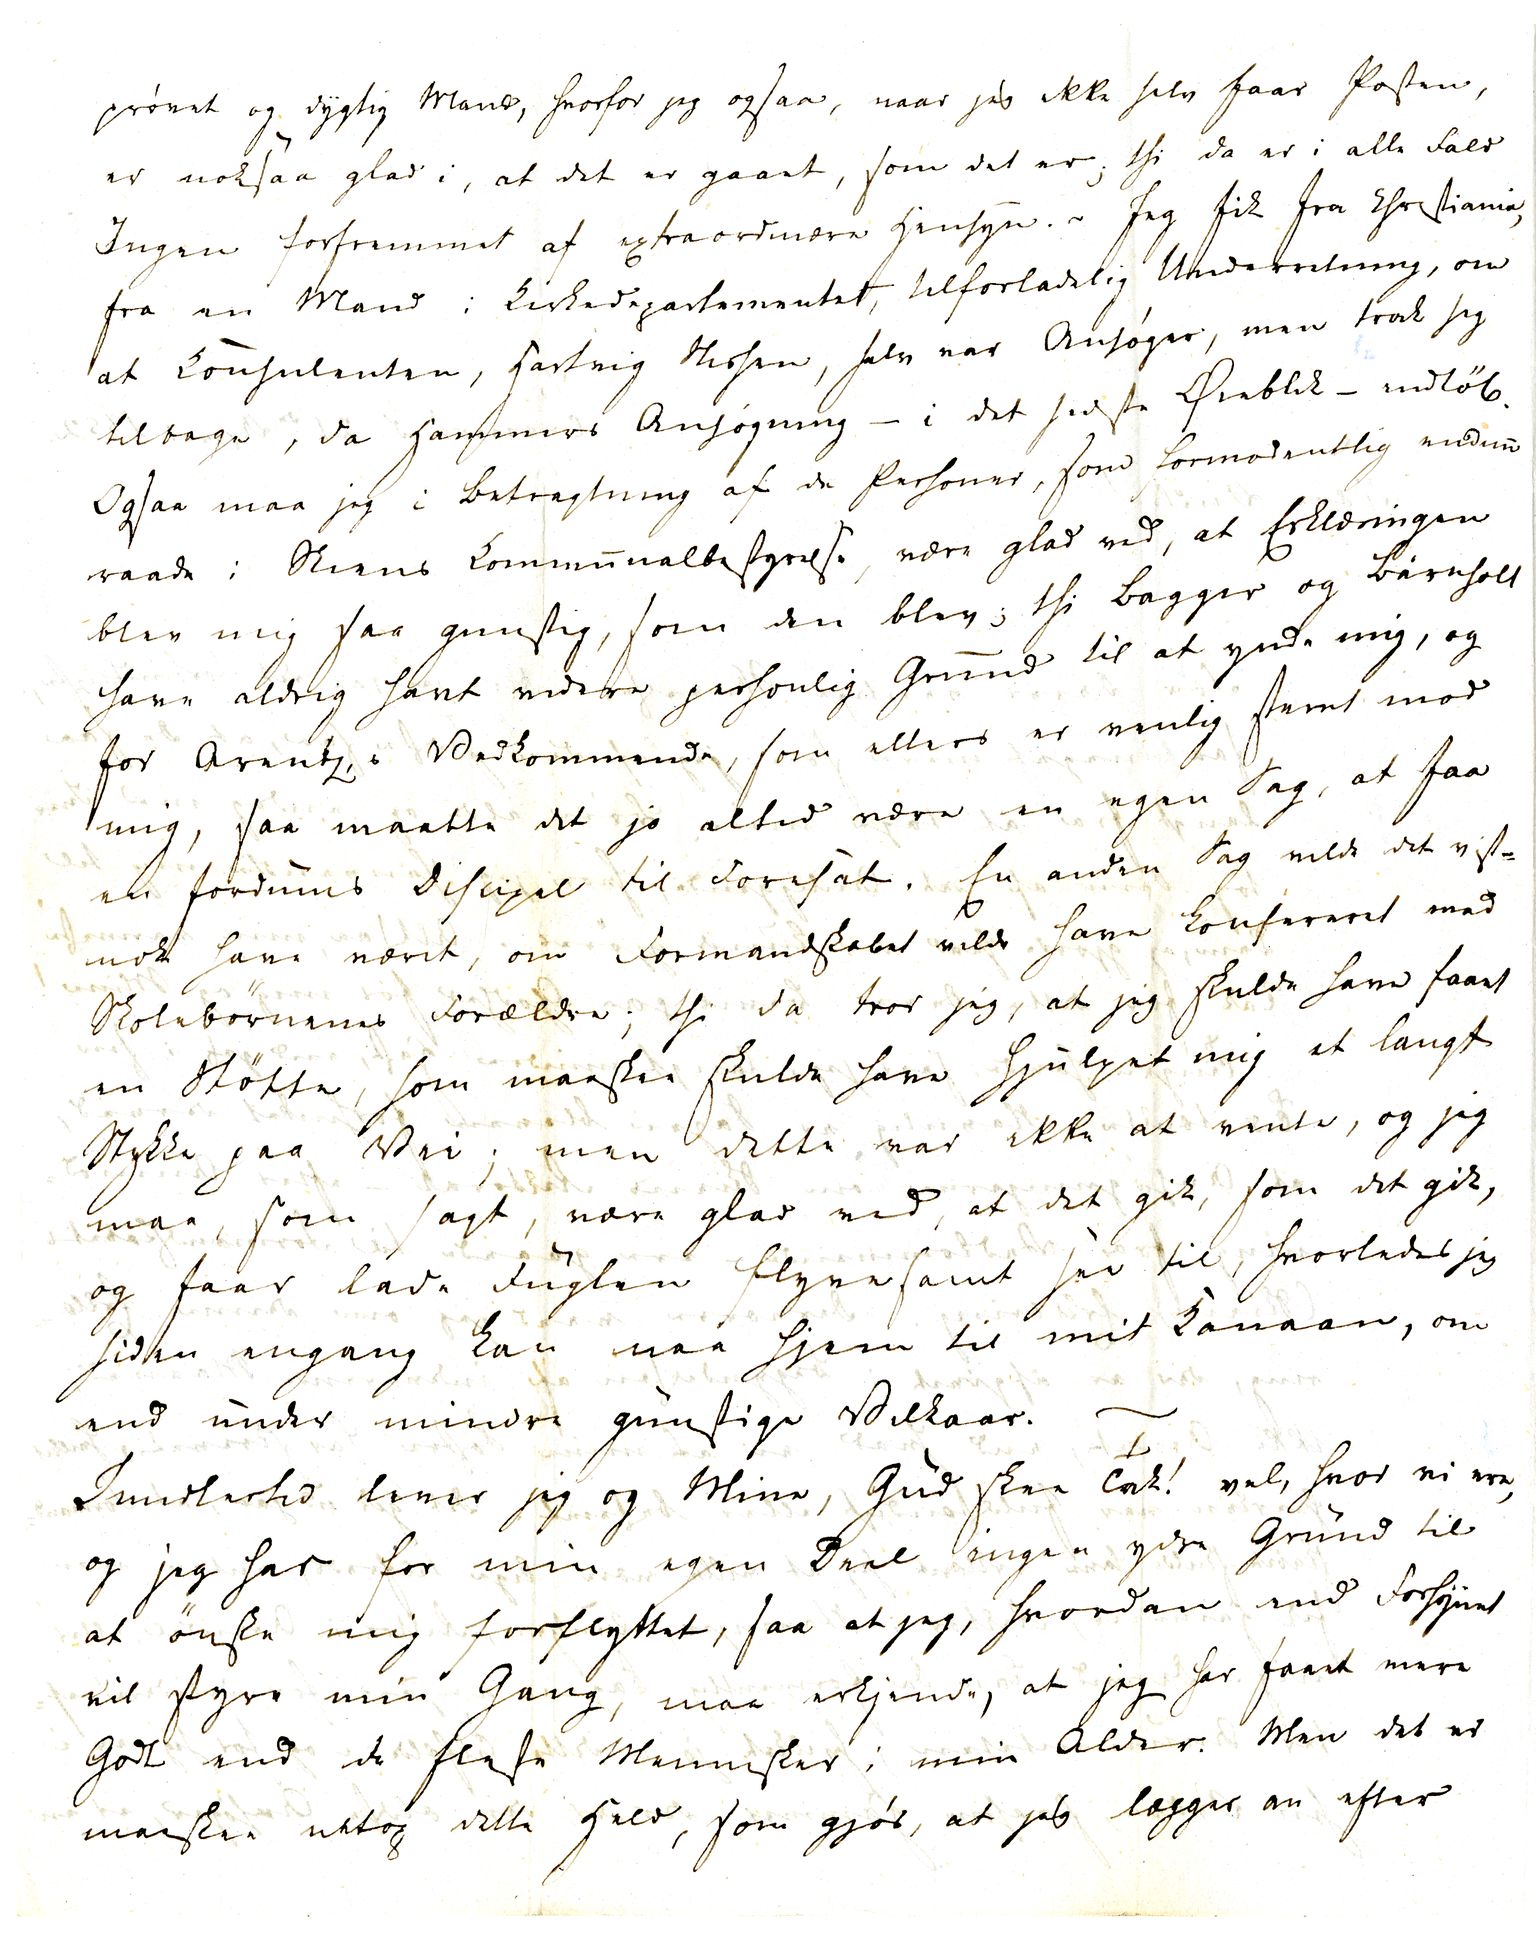 prövet og dygtig Mand, hvorfor jeg ogsaa, naar jeg ikke selv faar Posten,
er noksaa glad i, at det er gaaet, som det er; thi da er i alle Fald
Ingen forfremmet af extraordinære Hensyn. ~ Jeg fik fra Christiania,
fra en Mand i Kirkedepartementet, tilforladelig Underretning, om
at Konsulenten, Hartvig Nissen, selv var Ansøger, men trak sig
tilbage, da Hammers Ansøgning – i det sidste Øieblik – indløb.
Ogsaa maa jeg i Betragtning af de Personer, som formodentlig endnu
raade i Skiens Kommunalbestyrelse, være glad ved, at Erklæringen
blev mig saa gunstig, som den blev; thi Bagger og Bärnholt
have aldrig havt videre personlig Grund til at ynde mig, og
for Arentz,s Vedkommende, som ellers er venlig stemt mod
mig, saa maatte det jo altid være en egen Sag, at faa
en fordums Discipel til Foresat. En anden Sag vilde det vist=
nok have været, om Formandskabet vilde have konfereret med
Skolebörnenes Forældre; thi da tror jeg, at jeg skulde have faaet
en Stötte, som maaskee skulde have hjulpet mig et langt
Stykke paa Vei; men dette var ikke at vente, og jeg
maa, som sagt, være glad ved, at det gik, som det gik,
og faar lade Fuglen flyve samt see til, hvorledes jeg
siden engang kan naa hjem til mit Kanaan, om
end under mindre gunstige Vilkaar. ~
Imidlertid lever jeg og Mine, Gud skee Tak! vel, hvor vi ere,
og jeg har for min egen Deel ingen ydre Grund til
at önske mig forflyttet, saa at jeg, hvordan end Forsynet
vil styre min Gang, maa erkjende, at jeg har faaet mere
Godt end de fleste Mennesker i min Alder. Men det er
maaskee netop dette Held, som gjör, at jeg lægger an efter